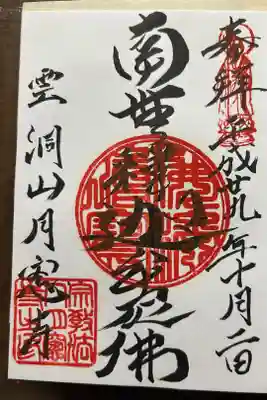 奉拝 平成廿九年十月二日
南無釋迦牟尼佛
霊洞山月窓寺